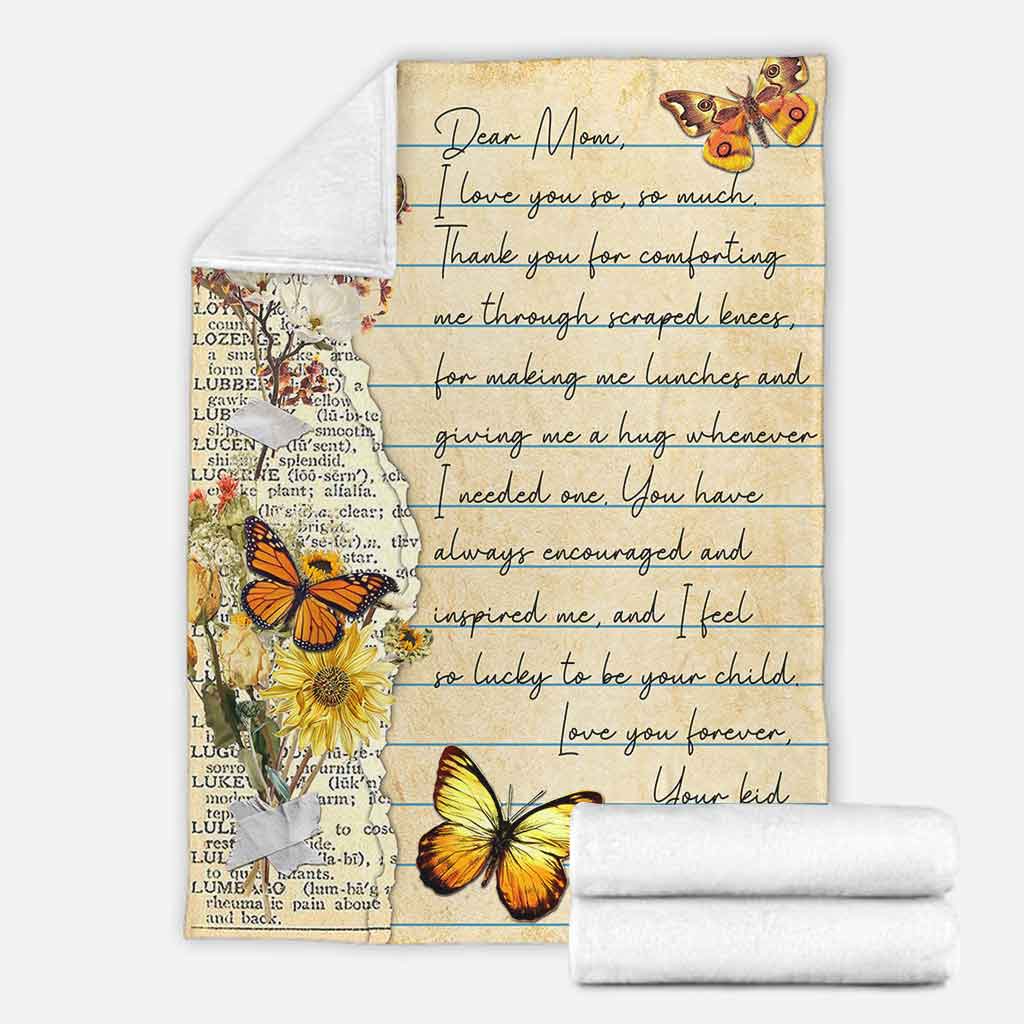 Dear Mom,
I love you so, so much.
Thank you for comforting
me through scraped knees,
for making me lunches and
giving me a hug whenever
I needed one. You have
always encouraged and
inspired me, and I feel
so lucky to be your child.
Love you forever,
Your kid
LOZENGE
a small
form
LUBBER
gawk
(lū-bi-te
smooth
LUCEN (lū'sent),
splendid.
LUCERNE (lōō-sẽrn'),
plant; alfalfa.
clear;
bright.
star.
sorro mournfu
LUKEW (lūk'n
moder arm;
to
to quiet infants.
LUMBAGO (lum-bā'g
rheumatic pain about
and back.